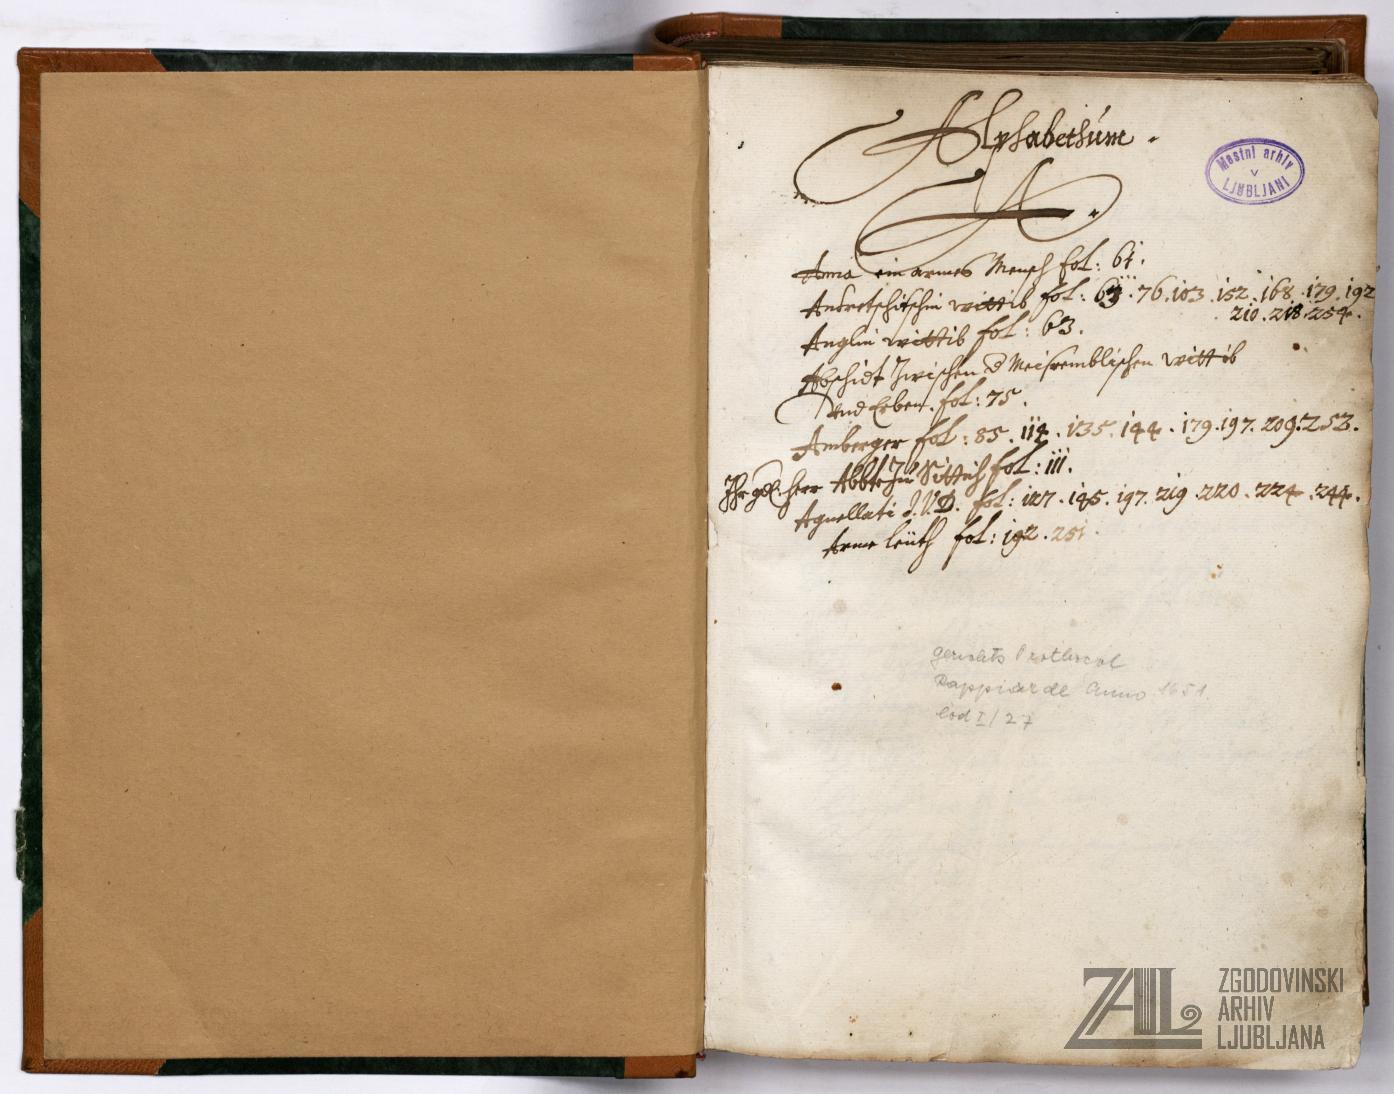 Alphabethúm.
A.
Anna ein armes Mensch fol: 61.
Andretschitschin wittib fol: 63. 76. 103. 152. 168. 179. 192
210. 218. 254.
Anglin wittib fol: 63.
Abschidt Zwischen d Meisremblischen wittib
vnd Erben. fol: 75.
Amberger fol: 85. 114. 135. 144. 179. 197. 209. 253.
Ihr herr Abbt Zu Sittich fol: 111.
Agnellati J.V.D. fol: 127. 195. 197. 219. 220. 224. 244.
Arme leüth fol: 192. 251.
Mestni arhiv
v
LJUBLJANI
gerichts Prothocol
Rappiarde Anno 1651.
Cod I/27
ZAL
ZGODOVINSKI
ARHIV
LJUBLJANA